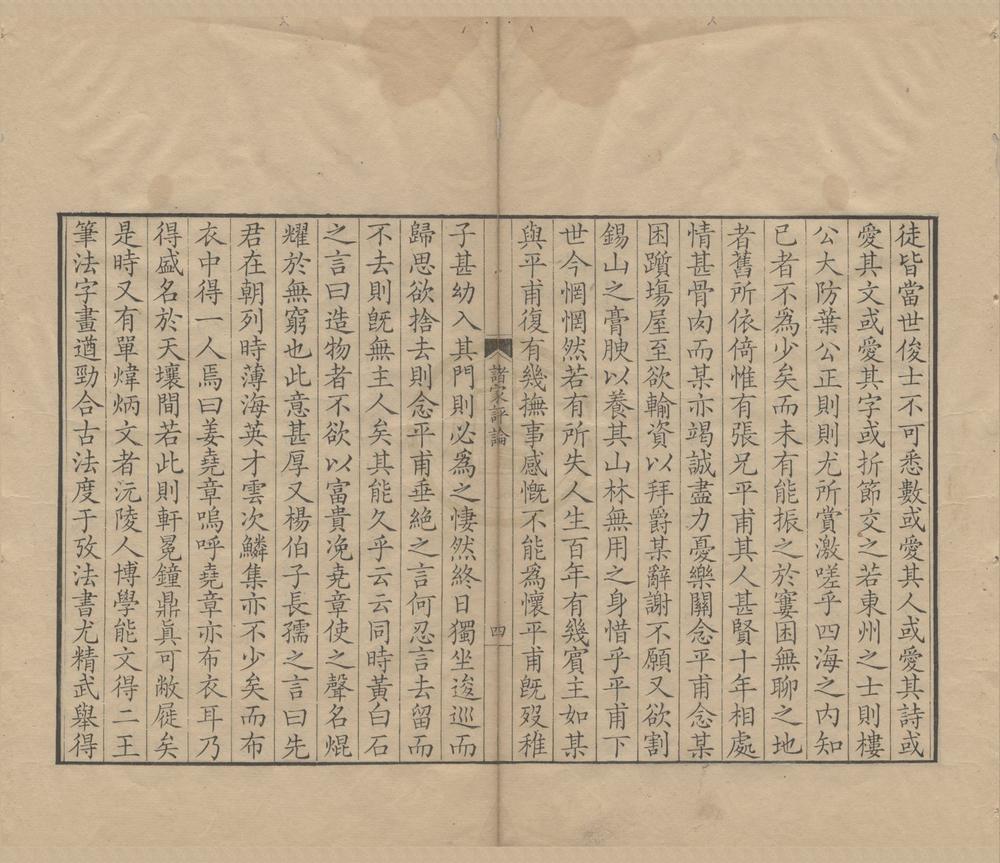 徒皆當世俊士不可悉數或愛其人或愛其詩或
愛其文或愛其字或折節交之若東州之士則樓
公大防葉公正則則尤所賞激嗟乎四海之内知
已者不爲少矣而未有能振之於窶困無聊之地
者舊所依倚惟有張兄平甫其人甚賢十年相處
情甚骨肉而某亦竭誠盡力憂樂關念平甫念某
困躓塲屋至欲輸資以拜爵某辭謝不願又欲割
錫山之膏腴以養其山林無用之身惜乎平甫下
世今惘惘然若有所失人生百年有幾賓主如某
與平甫復有幾撫事感慨不能爲懷平甫旣歿稚
諸家評論
四
子甚幼入其門則必爲之悽然終日獨坐逡巡而
歸思欲捨去則念平甫垂絶之言何忍言去留而
不去則旣無主人矣其能久乎云云同時黃白石
之言曰造物者不欲以富貴浼堯章使之聲名焜
耀於無窮也此意甚厚又楊伯子長孺之言曰先
君在朝列時薄海英才雲次鱗集亦不少矣而布
衣中得一人焉曰姜堯章嗚呼堯章亦布衣耳乃
得盛名於天壤間若此則軒冕鐘鼎真可敝屣矣
是時又有單煒炳文者沅陵人博學能文得二王
筆法字畫遒勁合古法度于攷法書尤精武舉得